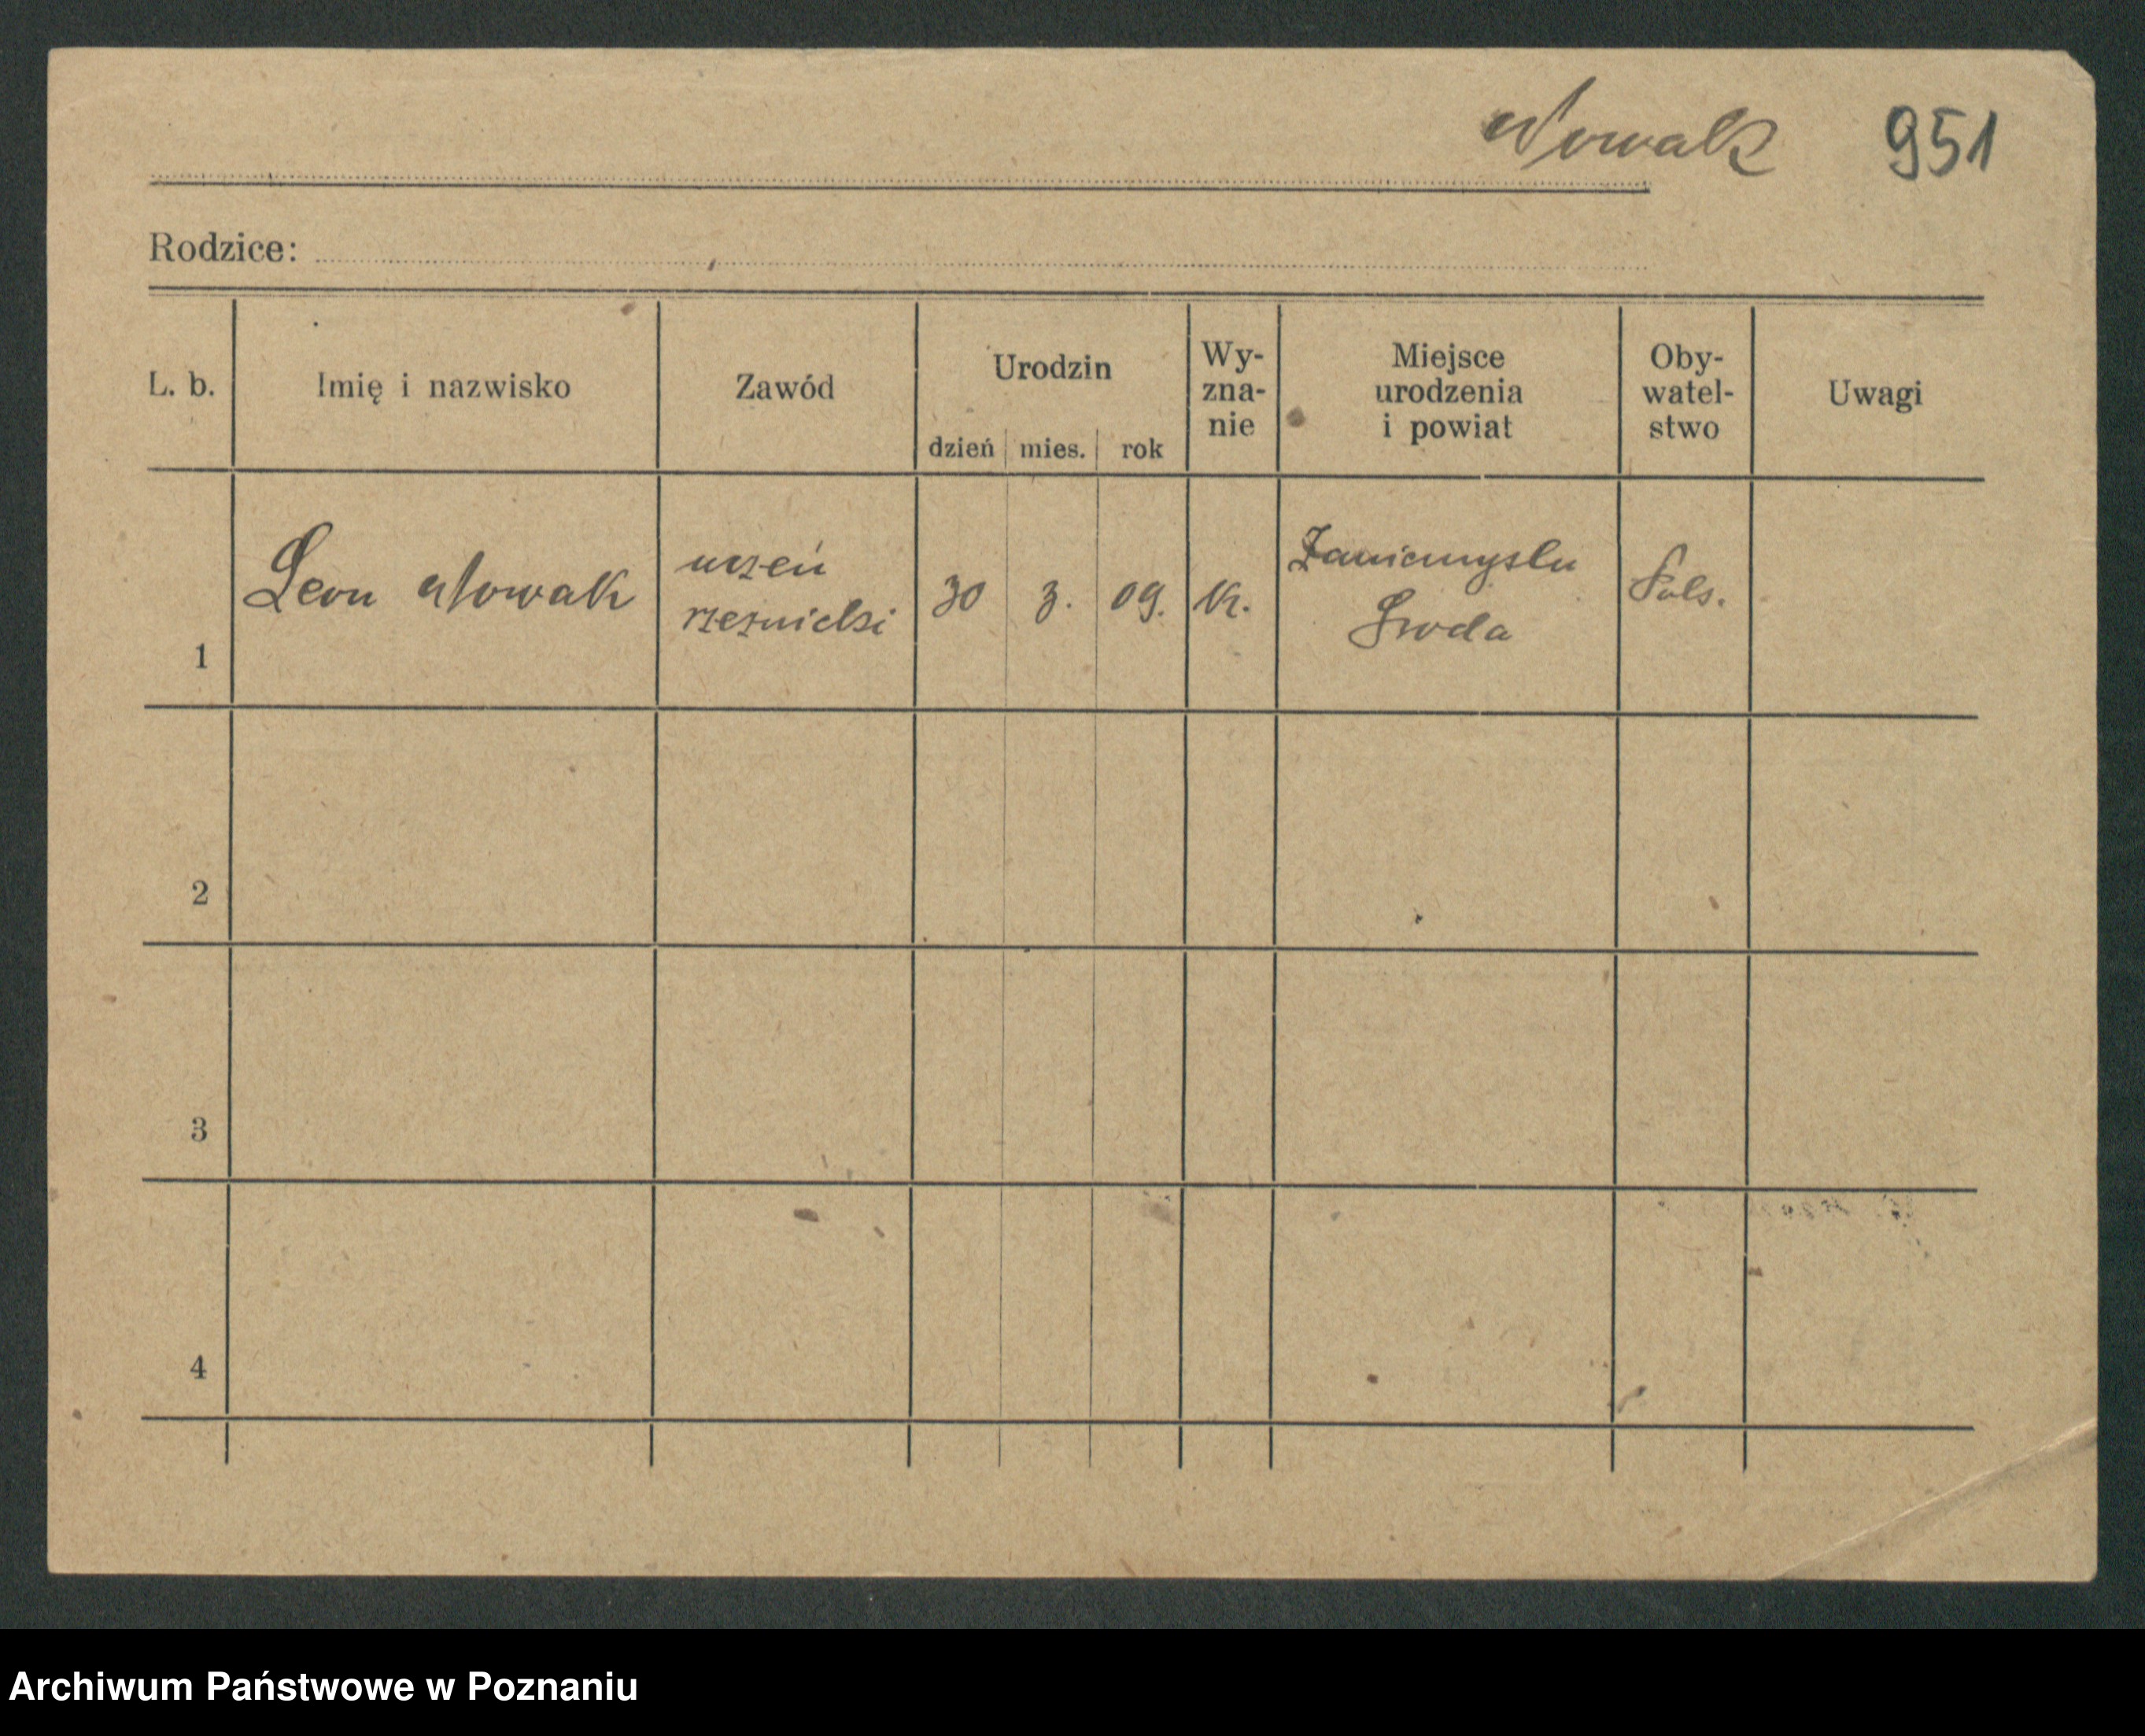 Nowak 951
Rodzice:
L. b. Imię i nazwisko Zawód Urodzin dzień mies. rok Wy-
zna-
nie Miejsce
urodzenia
i powiat Oby-
watel-
stwo Uwagi
1 Leon Nowak uczeń
rzeźnicki 30 3. 09. K. Zaniemyslu
Sroda Pols.
2
3
4
Archiwum Państwowe w Poznaniu